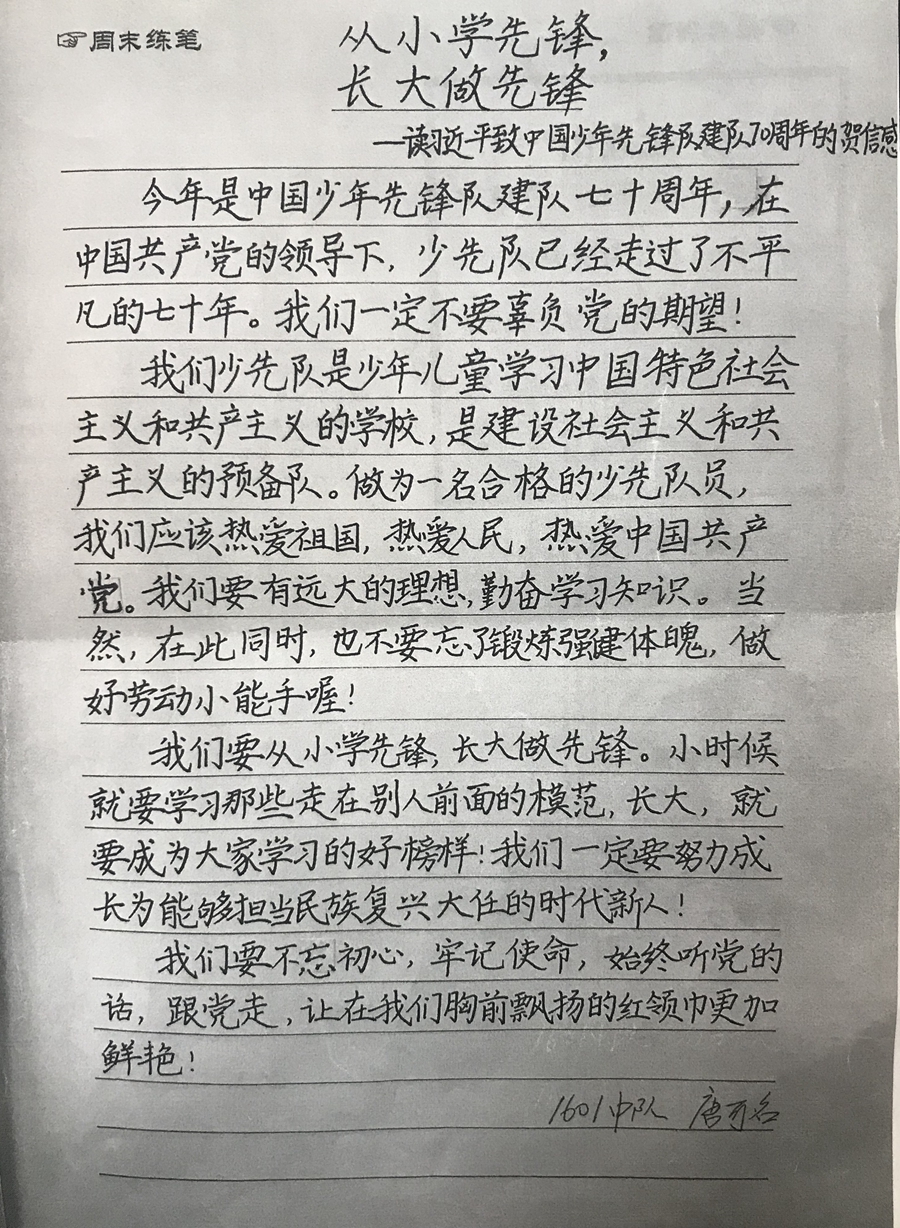 ☞周末练笔
从小学先锋,
长大做先锋
—读习近平致中国少年先锋队建队70周年的贺信感
今年是中国少年先锋队建队七十周年,在
中国共产党的领导下,少先队已经走过了不平
凡的七十年。我们一定不要辜负党的期望!
我们少先队是少年儿童学习中国特色社会
主义和共产主义的学校,是建设社会主义和共
产主义的预备队。做为一名合格的少先队员,
我们应该热爱祖国,热爱人民,热爱中国共产
党。我们要有远大的理想,勤奋学习知识。当
然,在此同时,也不要忘了锻炼强健体魄,做
好劳动小能手喔!
我们要从小学先锋,长大做先锋。小时候
就要学习那些走在别人前面的模范,长大,就
要成为大家学习的好榜样!我们一定要努力成
长为能够担当民族复兴大任的时代新人!
我们要不忘初心,牢记使命,始终听党的
话,跟党走,让在我们胸前飘扬的红领巾更加
鲜艳!
1601中队 唐可名